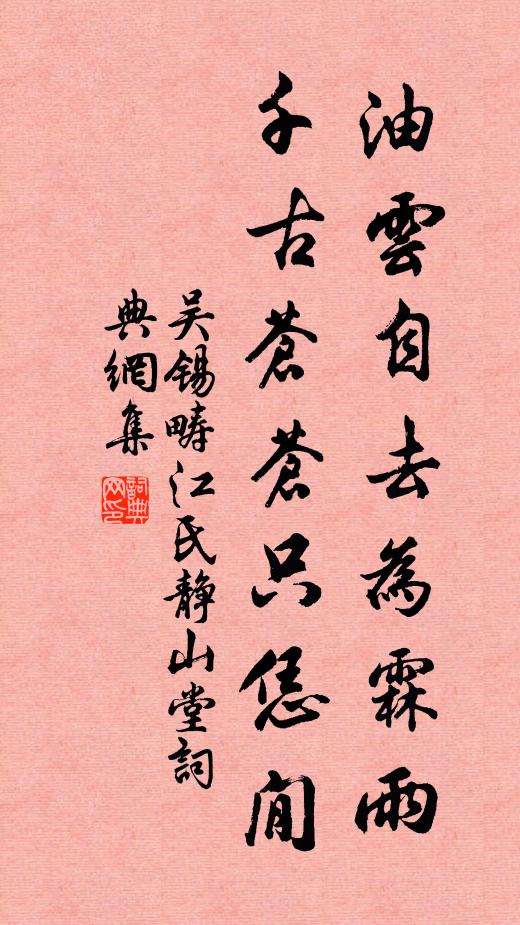 油雲自去為霖雨
千古蒼蒼只恁閒
吴錫疇江氏静山堂詞
典網集
詞典
网印